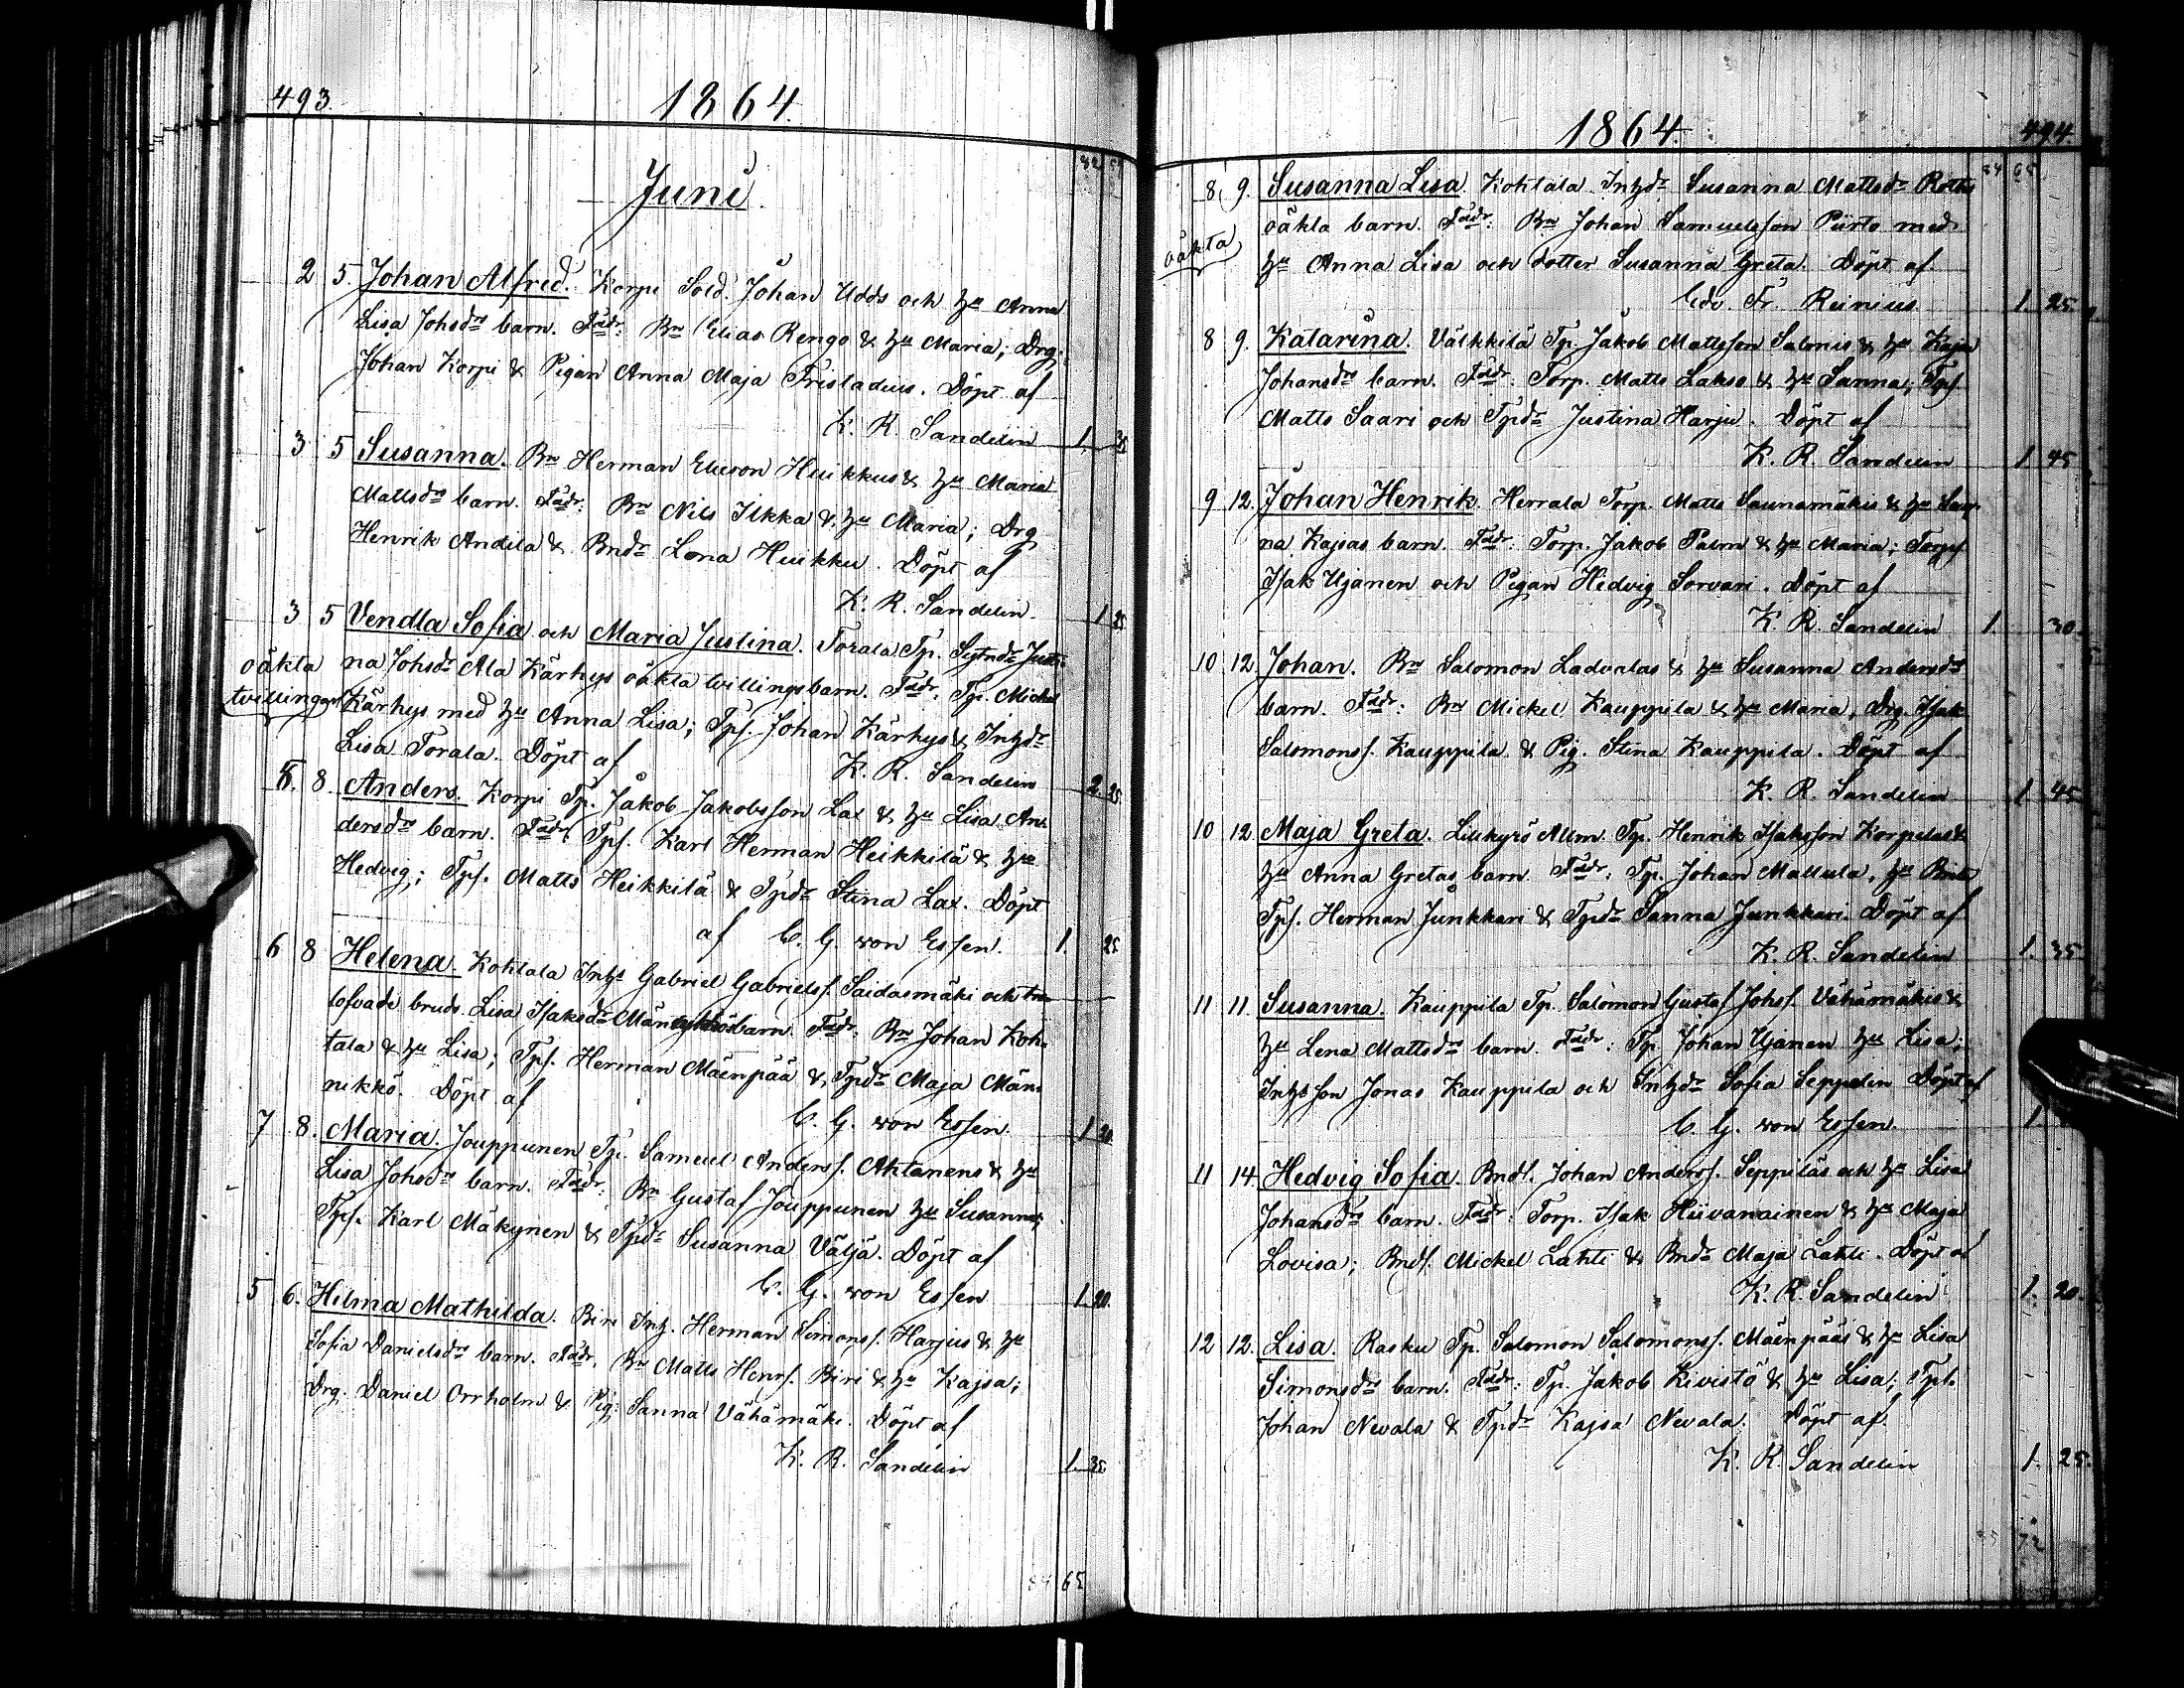 493.
1864.
Juni.
82
2 5. Johan Alfred. Korpi Sold. Johan Udds och hu Anna
Lisa Johsdrs barn. Fadr: Bn Elias Rengo & hu Maria; Drg:
Johan Korpi & Pigan Anna Maja Frisladius. Döpt af
K. R. Sandelin 1. 35
3 5 Susanna. Bn Herman Eliæson Huikkus & hu Maria
Mattsdrs barn. Fadr: Bn Nils Ilkka & hu Maria; Drg
Henrik Andila & Bndr Lena Huikku. Döpt af
K. R. Sandelin. 1 25
3 5 Vendla Sofia och Maria Justina. Torala Tp. Sytndr Justi-
oäkta
na Johsdr Ala Kärhys oäkta tvillingsbarn. Fadr: Tp. Mickel
tvillingar
Kärhys med hu Anna Lisa; Tpf. Johan Kärhys & Inhdr
Lisa Torala. Döpt af
K. R. Sandelin 2 25.
5. 8. Anders. Korpi Tp. Jakob Jakobsson Lax & hu Lisa An-
dersdrs barn. Fadr. Tpf. Karl Herman Heikkilä & hu
Hedvig; Tpf. Matts Heikkilä & Tpdr Stina Lax. Döpt
af C. G. von Essen. 1. 25.
6 8 Helena. Kohtala Inhs Gabriel Gabrielsf. Saidasmäki och tro-
lofvade bruds Lisa Isaksdr barn. Fadr: Bn Johan Koh-
tala & hu Lisa; Tpf. Herman Mäenpää & Tpdr Maja Män-
nikkö. Döpt af
C. G. von Essen. 1 20.
7 8. Maria. Jouppunen Tp. Samuel Andersf. Ahtanens & hu
Lisa Johsdrs barn. Fadr: Bn Gustaf Jouppunen hu Susanna;
Tpf. Karl Mäkynen & Tpdr Susanna Väljä. Döpt af
C. G. von Essen 1. 20.
5 6. Hilma Mathilda. Biri Inh. Herman Simonsf. Harjus & hu
Sofia Danielsdrs barn. Fadr. Bn Matts Henrf. Biri & hu Kajsa;
Drg. Daniel Orrholm & Pig: Sanna Vähämäki. Döpt af
K. R. Sandelin 1. 35.
84 65
1864.
494.
84 65
8 9. Susanna Lisa. Kohtala Inhdr Susanna Mattsdr
oäkta
oäkta barn. Fadr: Bn Johan Samuelsson Piirto med
hu Anna Lisa och dotter Susanna Greta. Döpt af
Edv. Fr. Reinius 1. 25.
8 9. Katarina. Välkkilä Tp. Jakob Mattsson Salonis & hu Kajsa
Johansdrs barn. Fadr: Torp. Matts Lakso & hu Sanna; Tpf.
Matts Saari och Tpdr Justina Harju. Döpt af
K. R. Sandelin 1 45
9 12. Johan Henrik. Herrala Torp. Matts Saunamäkis & hu San-
na Kajsas barn. Fadr: Torp. Jakob Palm & hu Maria; Torpf
Isak Ujanen och Pigan Hedvig Sorvari. Döpt af
K. R. Sandelin 1. 30.
10 12. Johan. Bn Salomon Ladvalas & hu Susanna Andersdrs
barn. Fadr: Bn Mickel Kauppila & hu Maria, Drg. Isak
Salomonsf. Kauppila & Pig. Stina Kauppila. Döpt af
K. R. Sandelin 1 45
10 12 Maja Greta. Lillkyrö Allm. Tp. Henrik Isaksson Korpelas &
hu Anna Gretas barn. Fadr: Tp. Johan Mallula, hu Brita
Tpf. Herman Junkkari & Tpdr Sanna Junkkari. Döpt af
K. R. Sandelin 1. 35
11 11. Susanna. Kauppila Tp. Salomon Gustaf Johsf. Vähämäkis &
hu Lena Mattsdrs barn. Fadr: Tp. Johan Ujanen hu Lisa;
Inhsson Jonas Kauppila och Inhdr Sofia Seppelin Döpt af
C. G. von Essen. 1
11 14. Hedvig Sofia. Bndf. Johan Andersf. Seppiläs och hu Lisa
Johansdrs barn. Fadr: Torp. Isak Hiivanainen & hu Maja
Lovisa; Bndf. Mickel Lahti & Bndr Maja Lahti. Döpt af
K. R. Sandelin 1. 20.
12 12. Lisa. Rasku Tp. Salomon Salomonsf. Mäenpääs & hu Lisa
Simonsdrs barn. Fadr: Tp. Jakob Kivistö & hu Lisa; Tpf.
Johan Nevala & Tpdr Kajsa Nevala. Döpt af
K. R. Sandelin 1. 25.
72